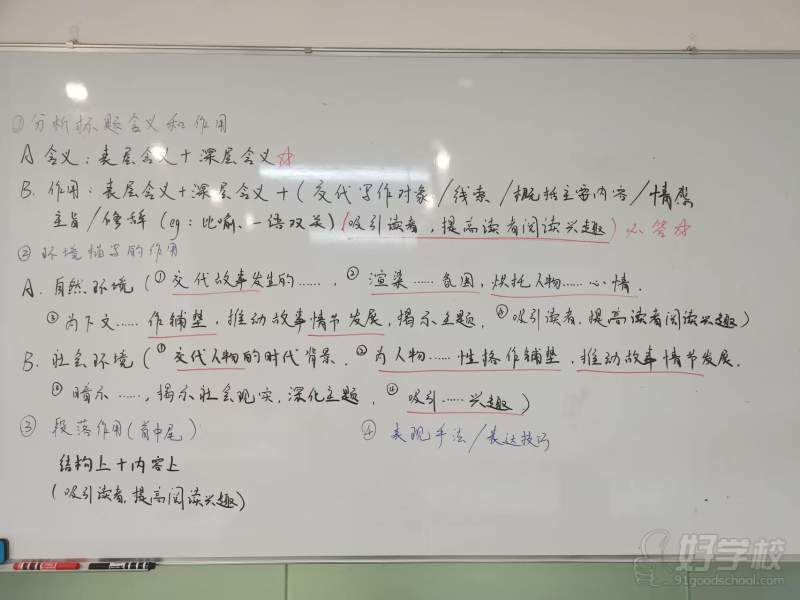 ①分析标题含义和作用
A 含义：表层含义+深层含义
B. 作用：表层含义+深层含义+(交代写作对象/线索/概括主要内容/情感
主旨/修辞(eg：比喻、一语双关)(吸引读者，提高读者阅读兴趣)必答
②环境描写的作用
A. 自然环境(①交代故事发生的……，②渲染……氛围，烘托人物……心情.
③为下文……作铺垫，推动故事情节发展，揭示主题，④吸引读者，提高读者阅读兴趣)
B. 社会环境(①交代人物的时代背景，②为人物……性格作铺垫，推动故事情节发展.
③暗示……，揭示社会现实，深化主题，④吸引……兴趣)
③段落作用(首中尾) ④表现手法/表达技巧
结构上+内容上
(吸引读者，提高阅读兴趣)
好学校
91goodschool.com